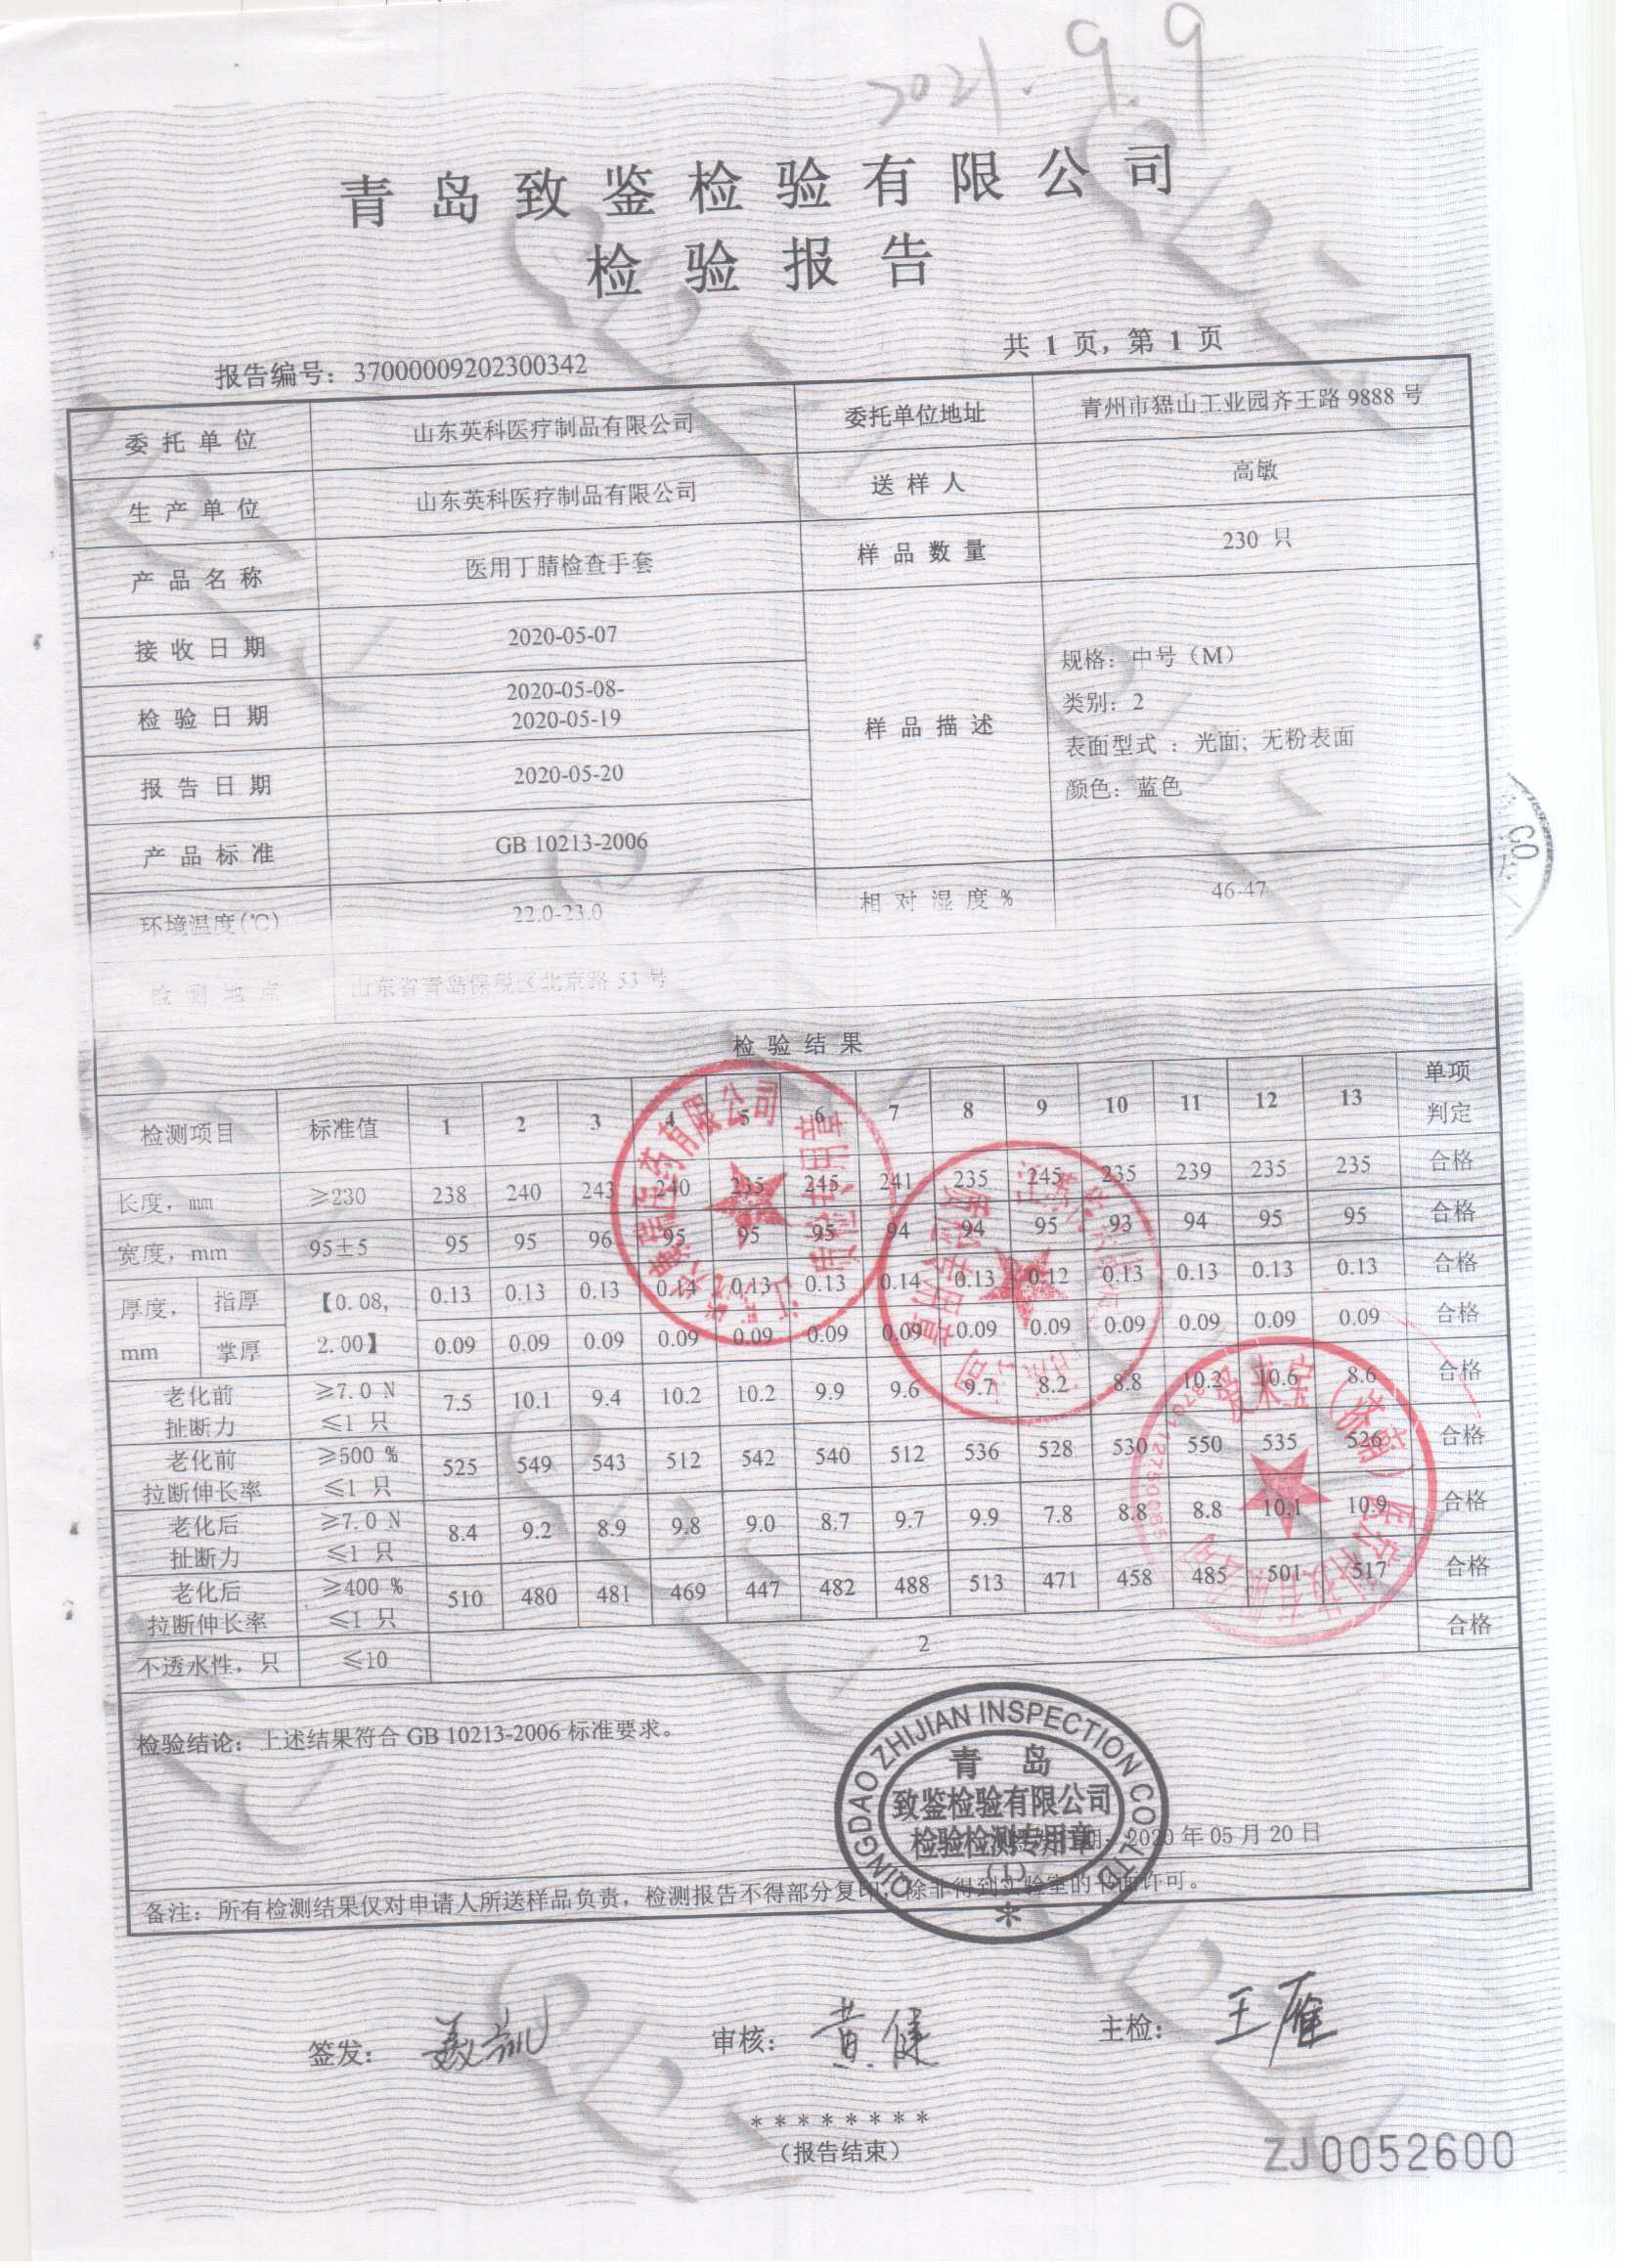 2021.9.9
青岛致鉴检验有限公司
检验报告
报告编号：37000009202300342 共 1 页，第 1 页
委托单位 山东英科医疗制品有限公司 委托单位地址 青州市猫山工业园齐王路 9888 号
生产单位 山东英科医疗制品有限公司 送样人 高敏
产品名称 医用丁腈检查手套 样品数量 230 只
接收日期 2020-05-07
检验日期 2020-05-08-
2020-05-19
报告日期 2020-05-20
产品标准 GB 10213-2006
样品描述
规格：中号（M）
类别：2
表面型式 ：光面; 无粉表面
颜色：蓝色
环境温度(℃) 22.0-23.0 相对湿度% 46-47
检测地点 山东省青岛保税区北京路 53 号
检验结果
检测项目 标准值 1 2 3 4 5 6 7 8 9 10 11 12 13 单项判定
长度，mm ≥230 238 240 243 240 235 245 241 235 245 235 239 235 235 合格
宽度，mm 95±5 95 95 96 95 95 95 94 94 95 93 94 95 95 合格
厚度，mm 【0.08，2.00】
指厚 0.13 0.13 0.13 0.14 0.13 0.13 0.14 0.13 0.12 0.13 0.13 0.13 0.13 合格
掌厚 0.09 0.09 0.09 0.09 0.09 0.09 0.09 0.09 0.09 0.09 0.09 0.09 0.09 合格
老化前扯断力 ≥7.0 N ≤1 只 7.5 10.1 9.4 10.2 10.2 9.9 9.6 9.7 8.2 8.8 10.2 10.6 8.6 合格
老化前拉断伸长率 ≥500 % ≤1 只 525 549 543 512 542 540 512 536 528 530 550 535 526 合格
老化后扯断力 ≥7.0 N ≤1 只 8.4 9.2 8.9 9.8 9.0 8.7 9.7 9.9 7.8 8.8 8.8 10.1 10.9 合格
老化后拉断伸长率 ≥400 % ≤1 只 510 480 481 469 447 482 488 513 471 458 485 501 517 合格
不透水性，只 ≤10 2 合格
检验结论：上述结果符合 GB 10213-2006 标准要求。
QINGDAO ZHIJIAN INSPECTION CO.,LTD
青岛
致鉴检验有限公司
检验检测专用章
(1)
2020 年 05 月 20 日
备注：所有检测结果仅对申请人所送样品负责，检测报告不得部分复印，除非得到实验室的书面许可。
签发： 审核：黄健 主检：王雁
********
（报告结束）
ZJ0052600
质检专用章
质检专用章
CO.